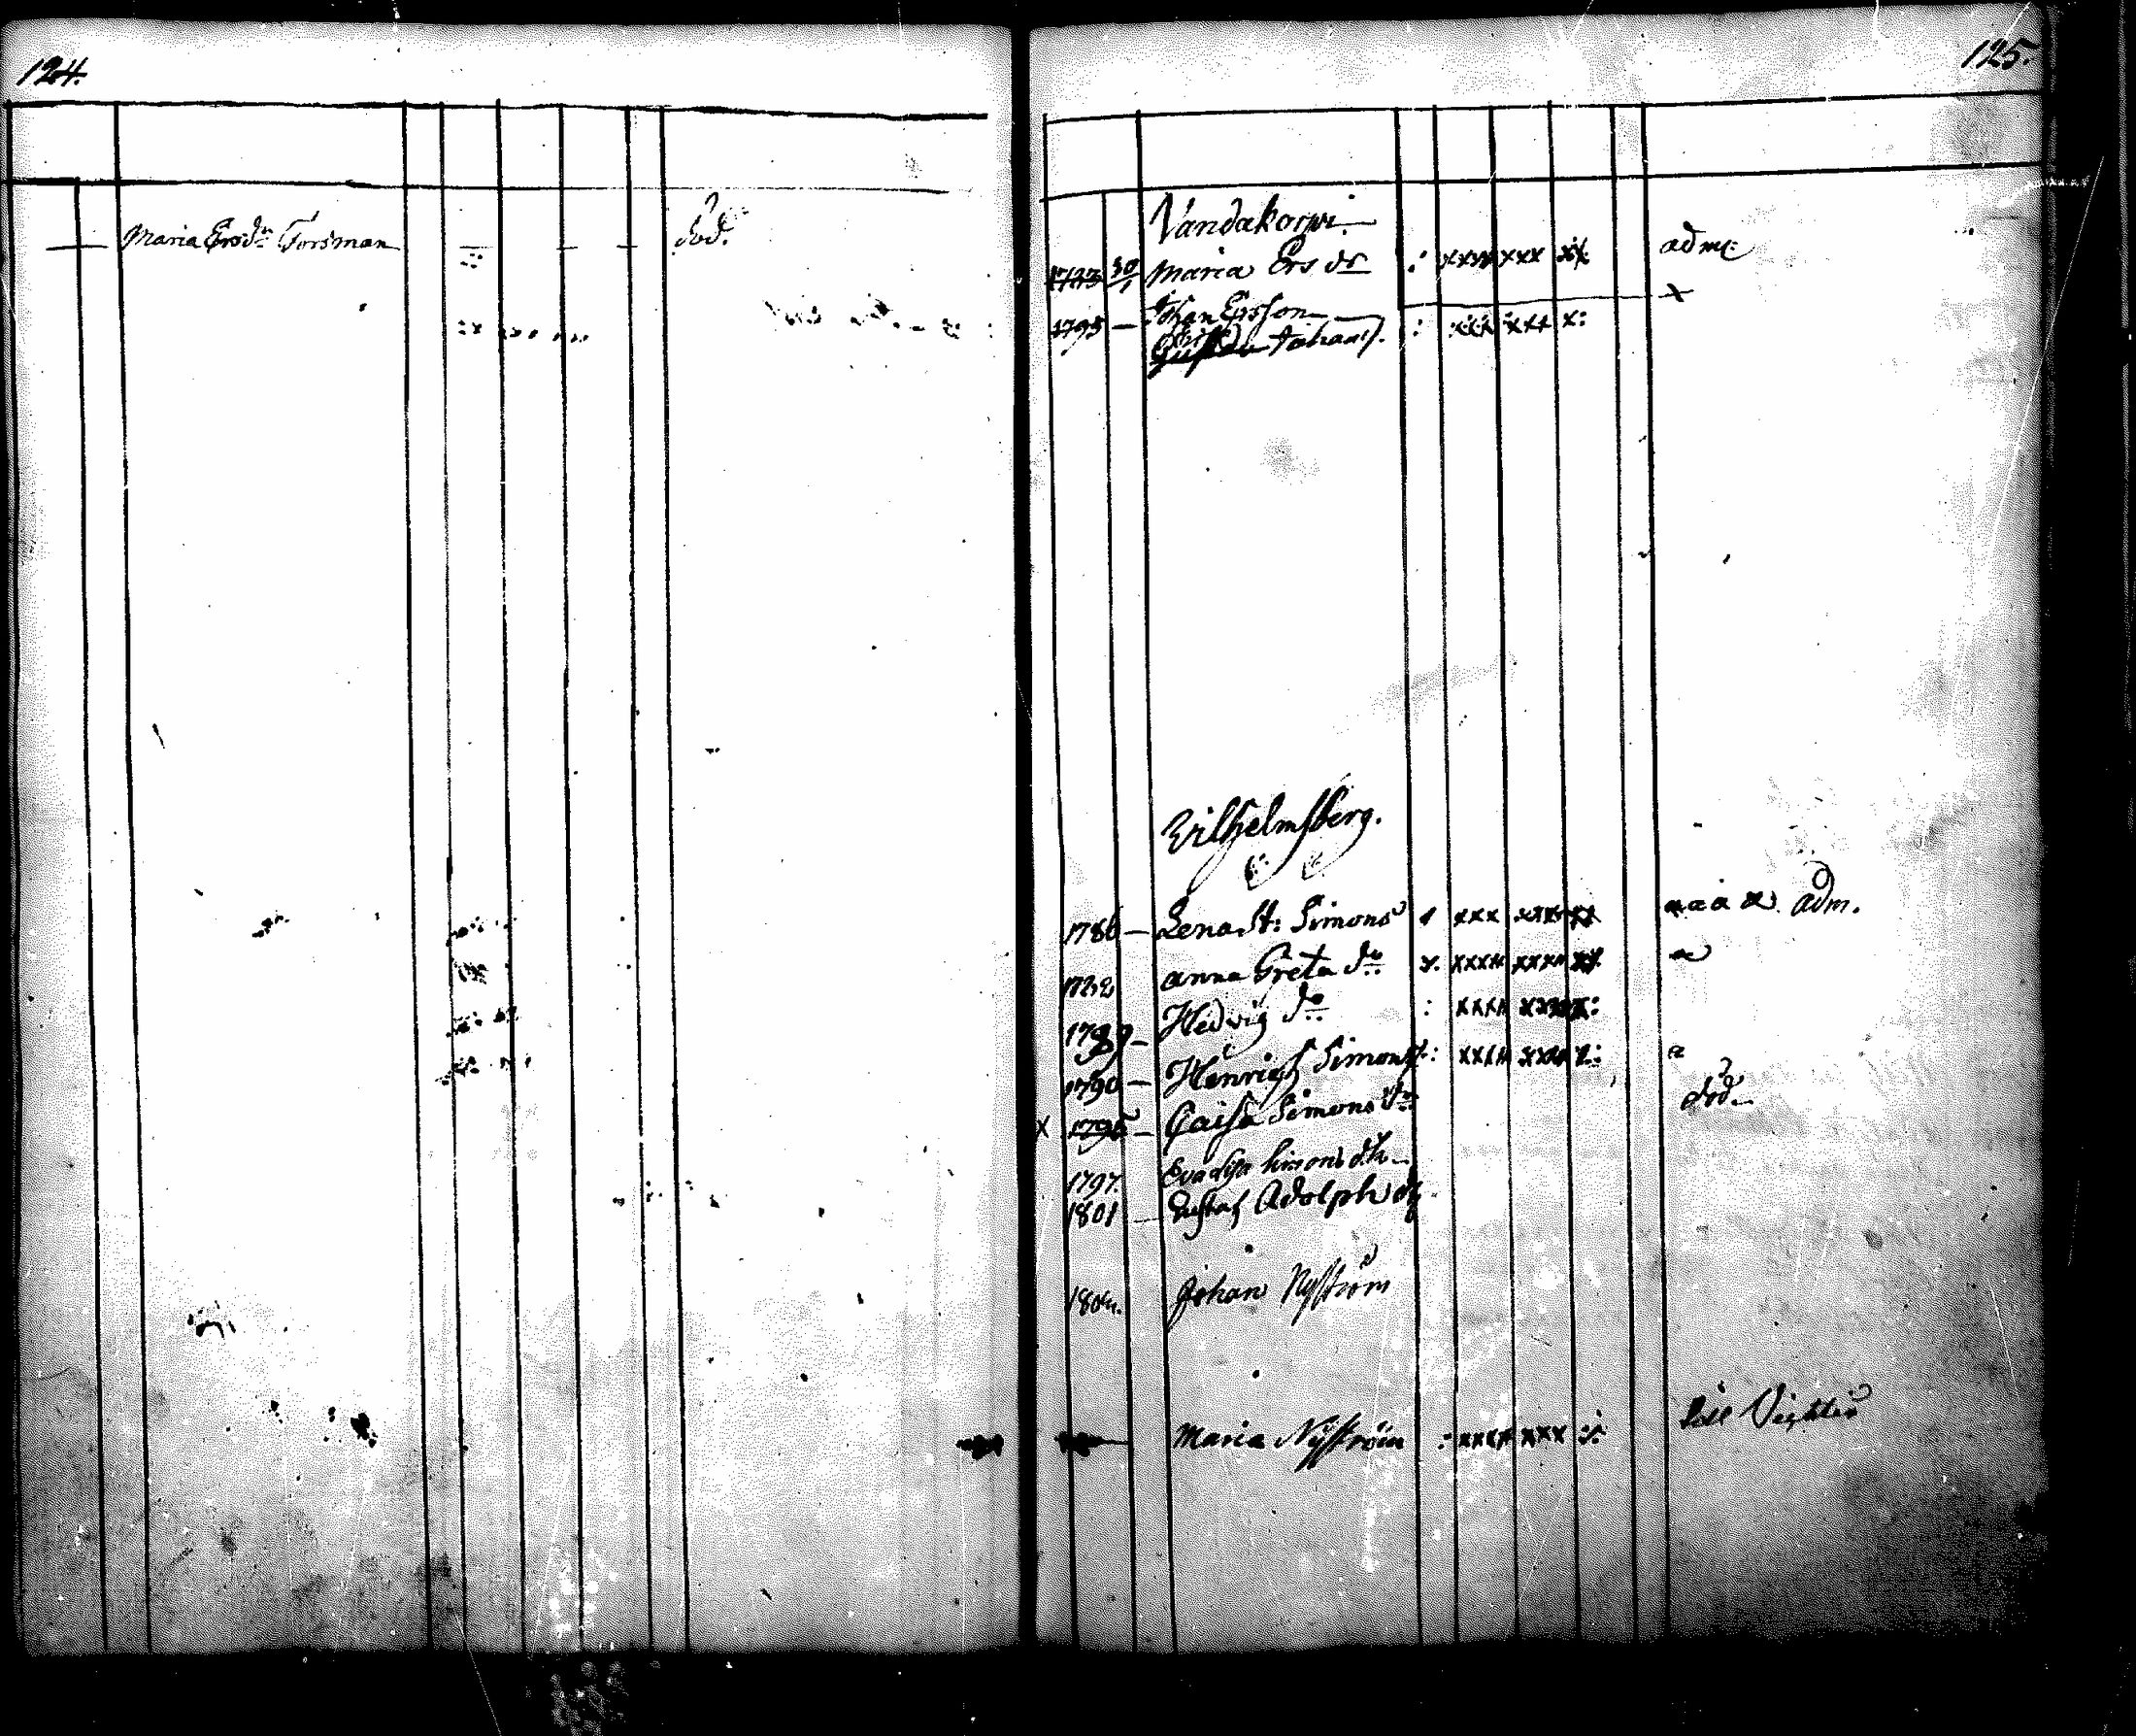 124.
Maria Ersdr Forsman död.
125.
Vandakorpi.
Maria Ers dr : xxxx xxx xx adm:
1795 — Johan Ersson
Johans. : xxx xxx x:
Vilhelmsberg.
1786 — Lena St: Simons xxx xxxx xx a a a adm.
Anna Greta do xxxx xxxx xx a
1789 — Hedvig do : xxxx xxxx x:
1790 — Henrich Simons : xxxx xxxx x: a
x 1795 — Caisa Simons dr död.
1797. Eva Lisa Simons
1801 — Gustaf Adolph
Johan Nyström
Maria Nyström : xxxx xxx x: